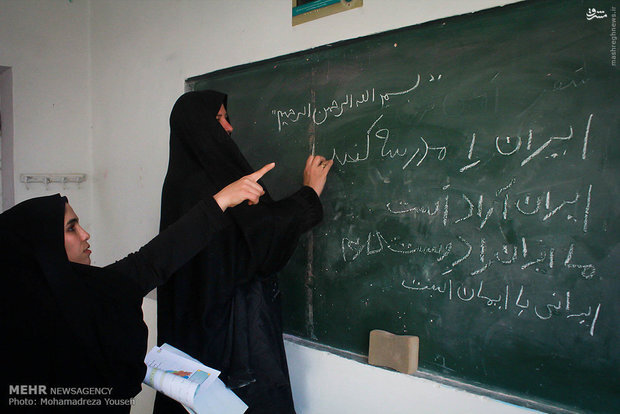 "بسم الله الرحمن الرحیم"
ایران را مدرسه کنید
ایران آزاد است
ما ایران را دوست داریم
ایرانی با ایمان است
مشرق
mashreghnews.ir
MEHR NEWSAGENCY
Photo: Mohamadreza Youseh